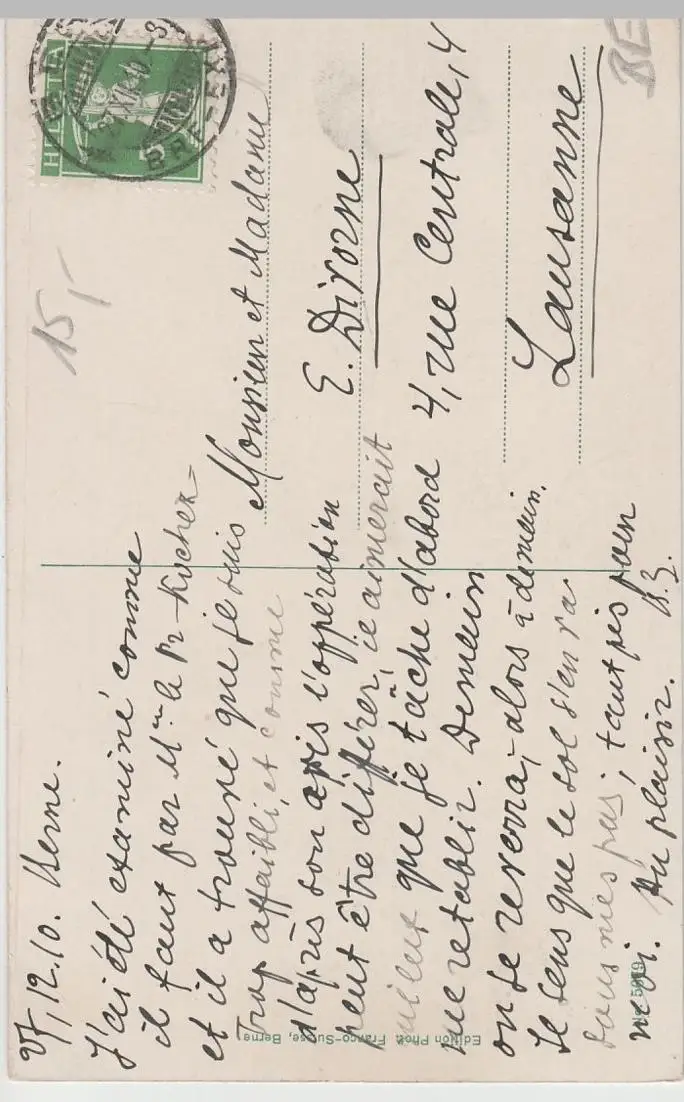 27,12.10. Berne.
J'ai été examiné comme
il faut par Mr le Pr-Kocher-
et il a trouvé que je suis
trop affaibli, et comme
d'après son avis l'oppération
peut être diférer, ie aimerait
mieux que je tâche d'abord
me retablir. Demain
on se reverra, alors à demain.
Je sens que le sol s'en va
sous mes pas; tant pis pour
moi. Au plaisir.
Monsieur et Madame
E. Divorne
4, rue Centrale, 4
Lausanne
HELVETIA
5
BERN
BRF. EXP.
15,-
BE
Edition Phot. Franco-Suisse, Berne